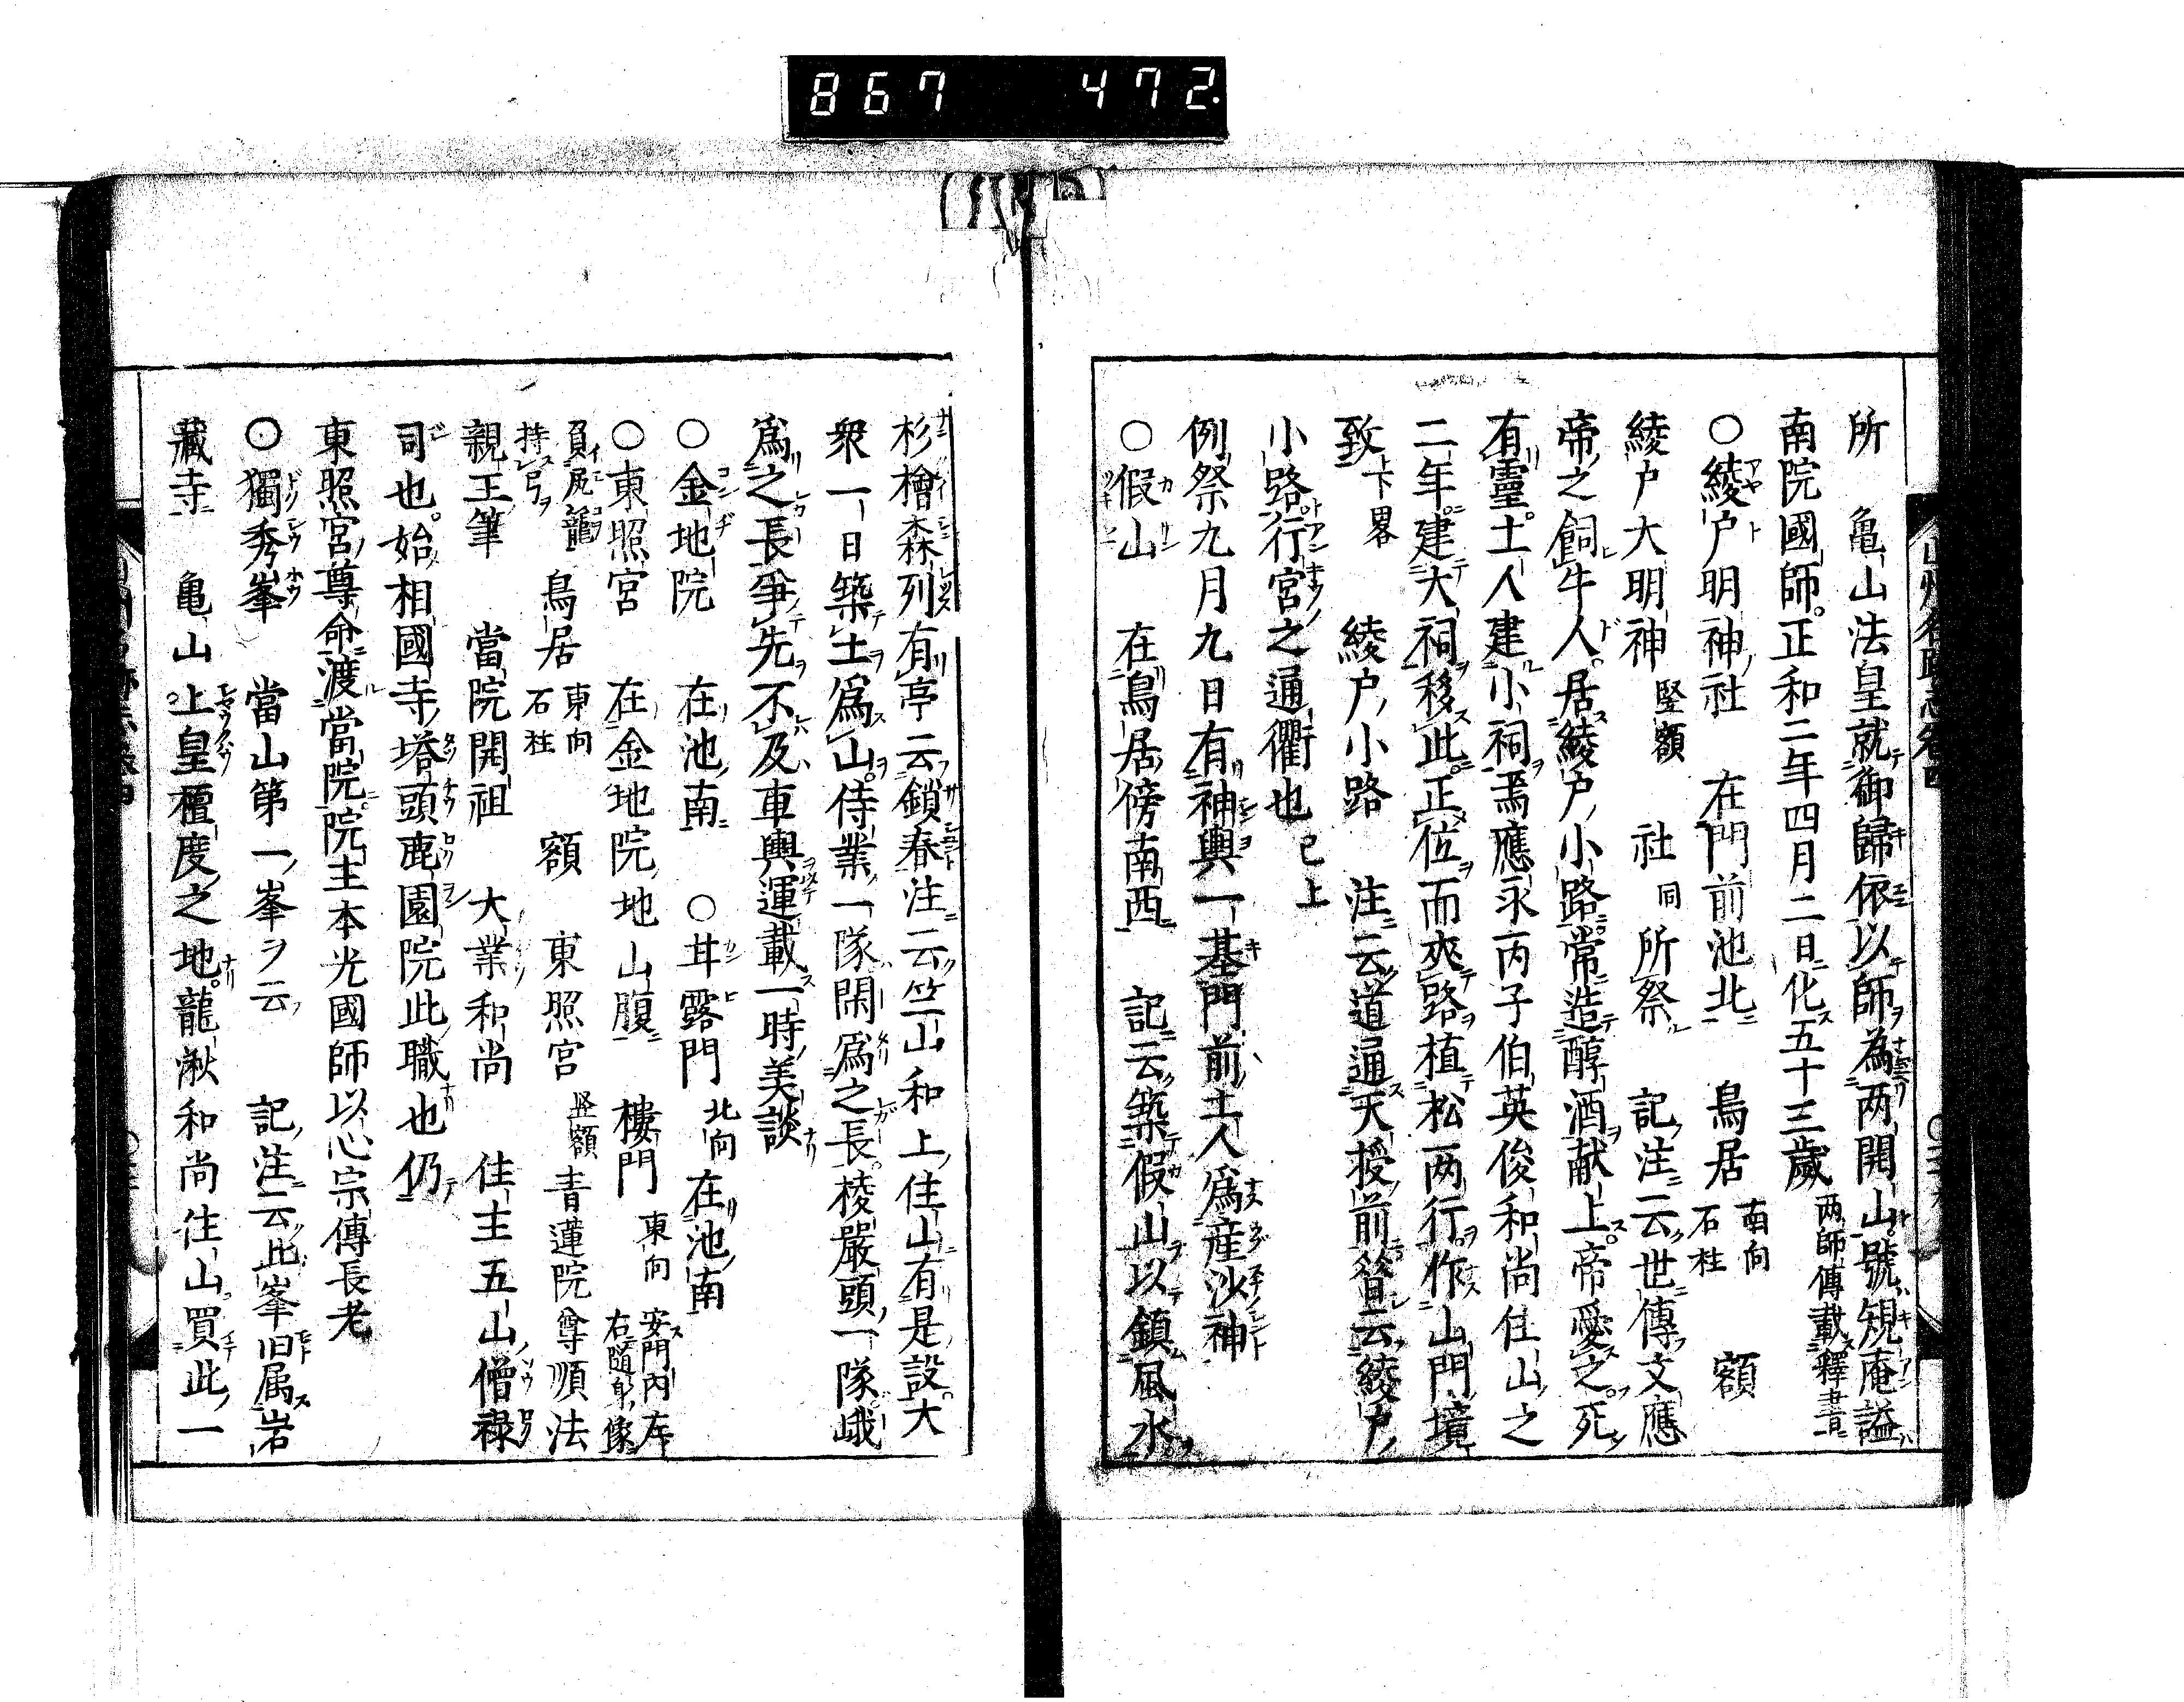 867 472
所 亀山法皇就御歸依以師為两開山號䂓庵謚
南院國師正和二年四月二日化五十三歲 两師傳載釋書
○綾户明神社 在門前池北 鳥居 南向 石柱 額
綾户大明神 竪額 社 同 所祭 記注云世傳文應
帝之飼牛人居綾户小路常造醇酒献上帝愛之死
有靈土人建小祠焉應永丙子伯英俊和尚住山之
二年建大祠移此正位而夾路植松两行作山門境
致 下畧 綾户小路 注云道通天授前簷云綾户
小路行宮之通衢也 已上
例祭九月九日有神輿一基門前土人爲産沙神
○假山 在鳥居傍南西 記云築假山以鎮風水
杉檜森列有亭云鎖春注云竺山和上住山有是設大
衆一日築土爲山侍業一隊閑爲之長棱嚴頭一隊峨
爲之長爭先不及車輿運載一時美談
○金地院 在池南 ○甘露門 北向 在池南
○東照宮 在金地院地山腹 樓門 東向 安門内左右隨身像
負胡籠持弓 鳥居 東向 石柱 額 東照宮 竪額 青蓮院尊順法
親王筆 當院開祖 大業和尚 住主五山僧禄
司也始相國寺塔頭鹿園院此職也仍
東照宮尊命渡當院院主本光國師以心宗傳長老
○獨秀峯 當山第一峯ヲ云 記注云此峯旧属岩
藏寺 亀山上皇檀度之地龍湫和尚住山買此一